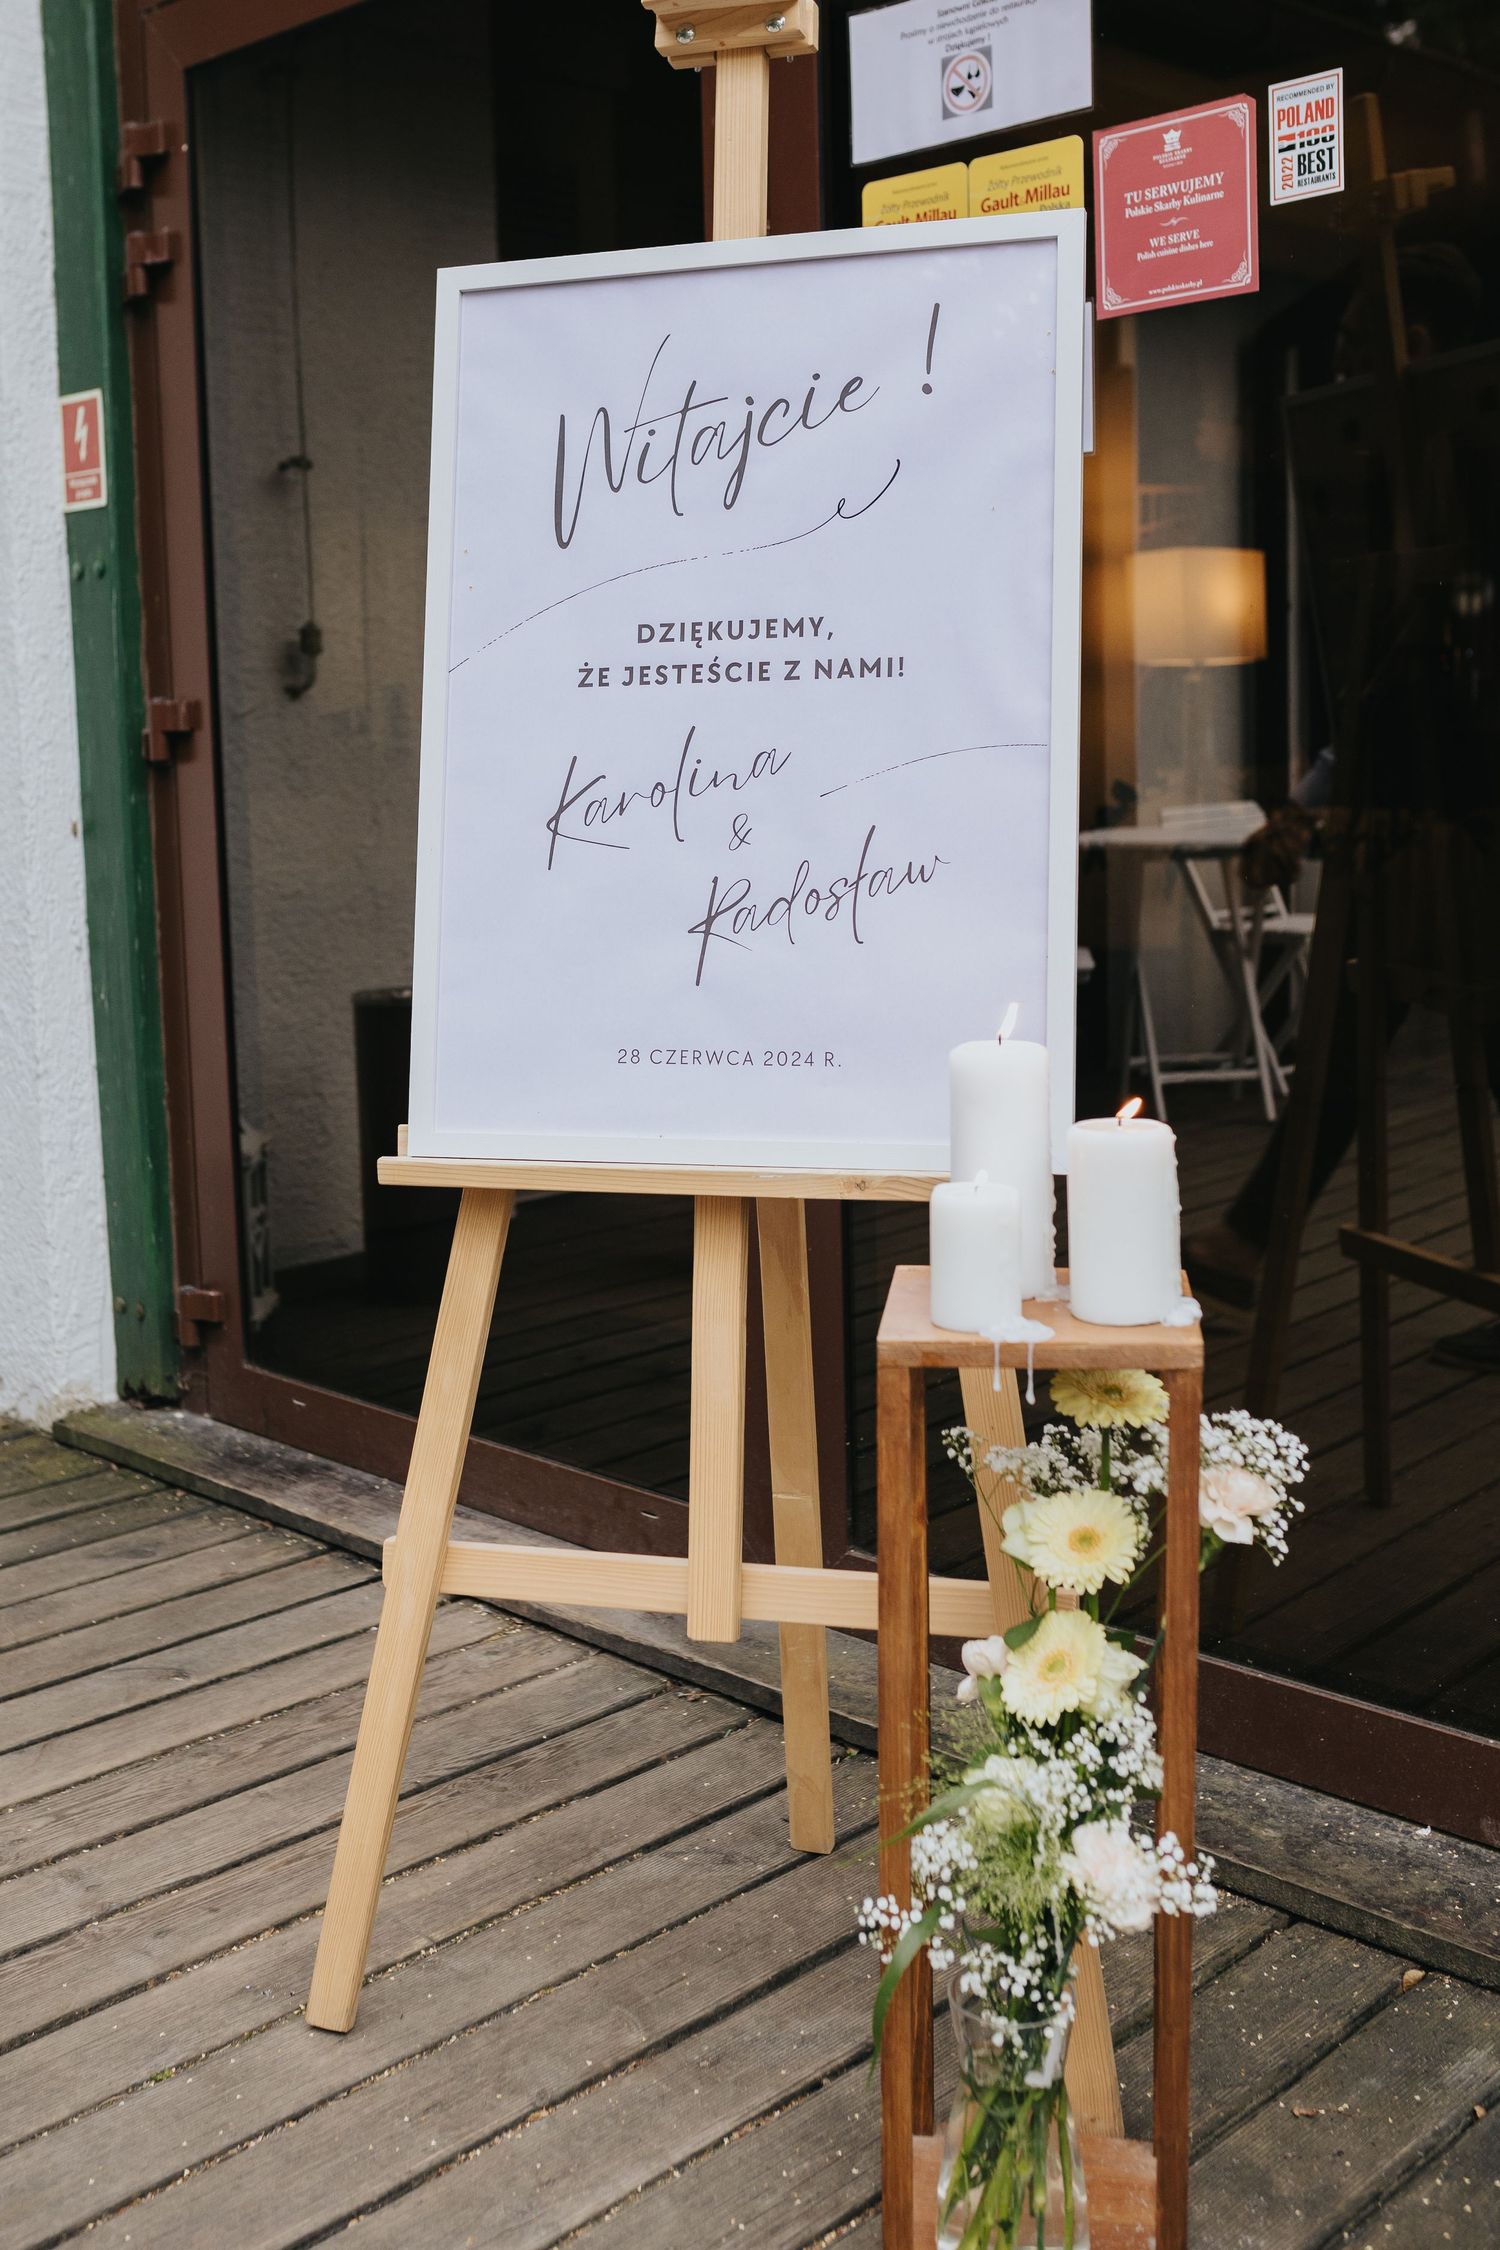 Prosimy o niewchodzenie do restauracji
w strojach kąpielowych
Dziękujemy !
RECOMMENDED BY
POLAND
100
BEST
RESTAURANTS
2022
Żółty Przewodnik
Gault&Millau
Żółty Przewodnik
Gault&Millau
Polska
POLSKIE SKARBY
KULINARNE
TU SERWUJEMY
Polskie Skarby Kulinarne
WE SERVE
Polish cuisine dishes here
www.polskieskarby.pl
Witajcie !
DZIĘKUJEMY,
ŻE JESTEŚCIE Z NAMI!
Karolina
&
Radosław
28 CZERWCA 2024 R.